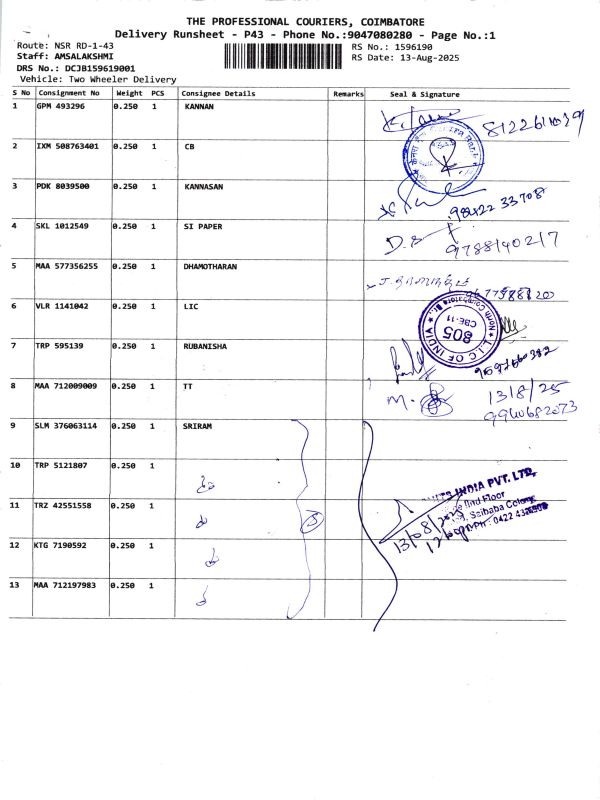 THE PROFESSIONAL COURIERS, COIMBATORE
Delivery Runsheet - P43 - Phone No.:9047080280 - Page No.:1
Route: NSR RD-1-43
RS No.: 1596190
Staff: AMSALAKSHMI
RS Date: 13-Aug-2025
DRS No.: DCJB159619001
Vehicle: Two Wheeler Delivery
S No Consignment No Weight PCS Consignee Details Remarks Seal & Signature
1 GPM 493296 0.250 1 KANNAN
2 IXM 508763401 0.250 1 CB
3 PDK 8039500 0.250 1 KANNASAN
98422 33708
4 SKL 1012549 0.250 1 SI PAPER
D.S
9788140217
5 MAA 577356255 0.250 1 DHAMOTHARAN
6 VLR 1141042 0.250 1 LIC
L.I.C OF INDIA
805
CBE-11
7 TRP 595139 0.250 1 RUBANISHA
8 MAA 712009009 0.250 1 TT
M.
13/8/25
9940682073
9 SLM 376063114 0.250 1 SRIRAM
10 TRP 5121807 0.250 1
INDIA PVT. LTD,
IInd Floor
Saibaba Colony
Ph : 0422
11 TRZ 42551558 0.250 1
5
13/08/2025
12 KTG 7190592 0.250 1
13 MAA 712197983 0.250 1